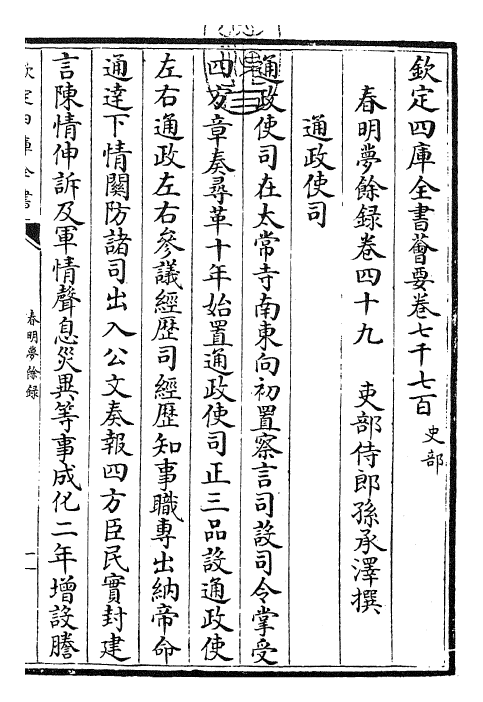 欽定四庫全書薈要卷七千七百 史部
春明夢餘録卷四十九 吏部侍郎孫承澤撰
通政使司
通政使司在太常寺南東向初置察言司設司令掌受
四方章奏尋革十年始置通政使司正三品設通政使
左右通政左右參議經歴司經歴知事職專出納帝命
通達下情關防諸司出入公文奏報四方臣民實封建
言陳情伸訴及軍情聲息災異等事成化二年增設謄
欽定四庫全書
春明夢餘録
一